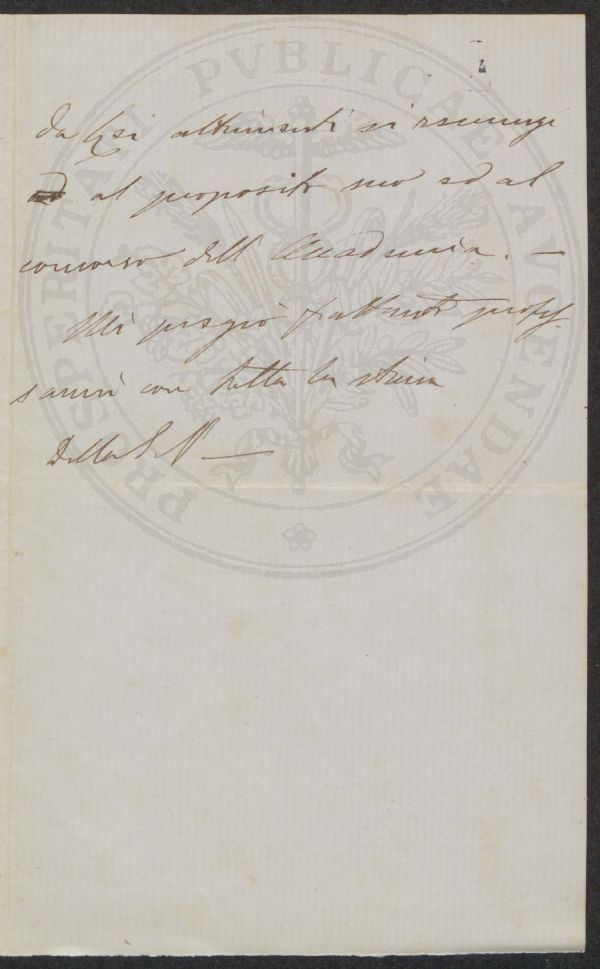 4
da Lei altrimenti si rivenga
ed al proposito suo ed al
concorso dell' Accademia. —
Mi pregio frattanto profes-
sarmi con tutta la stima
Della S. V. —
PROSPERITATI PVBLICAE AVGENDAE